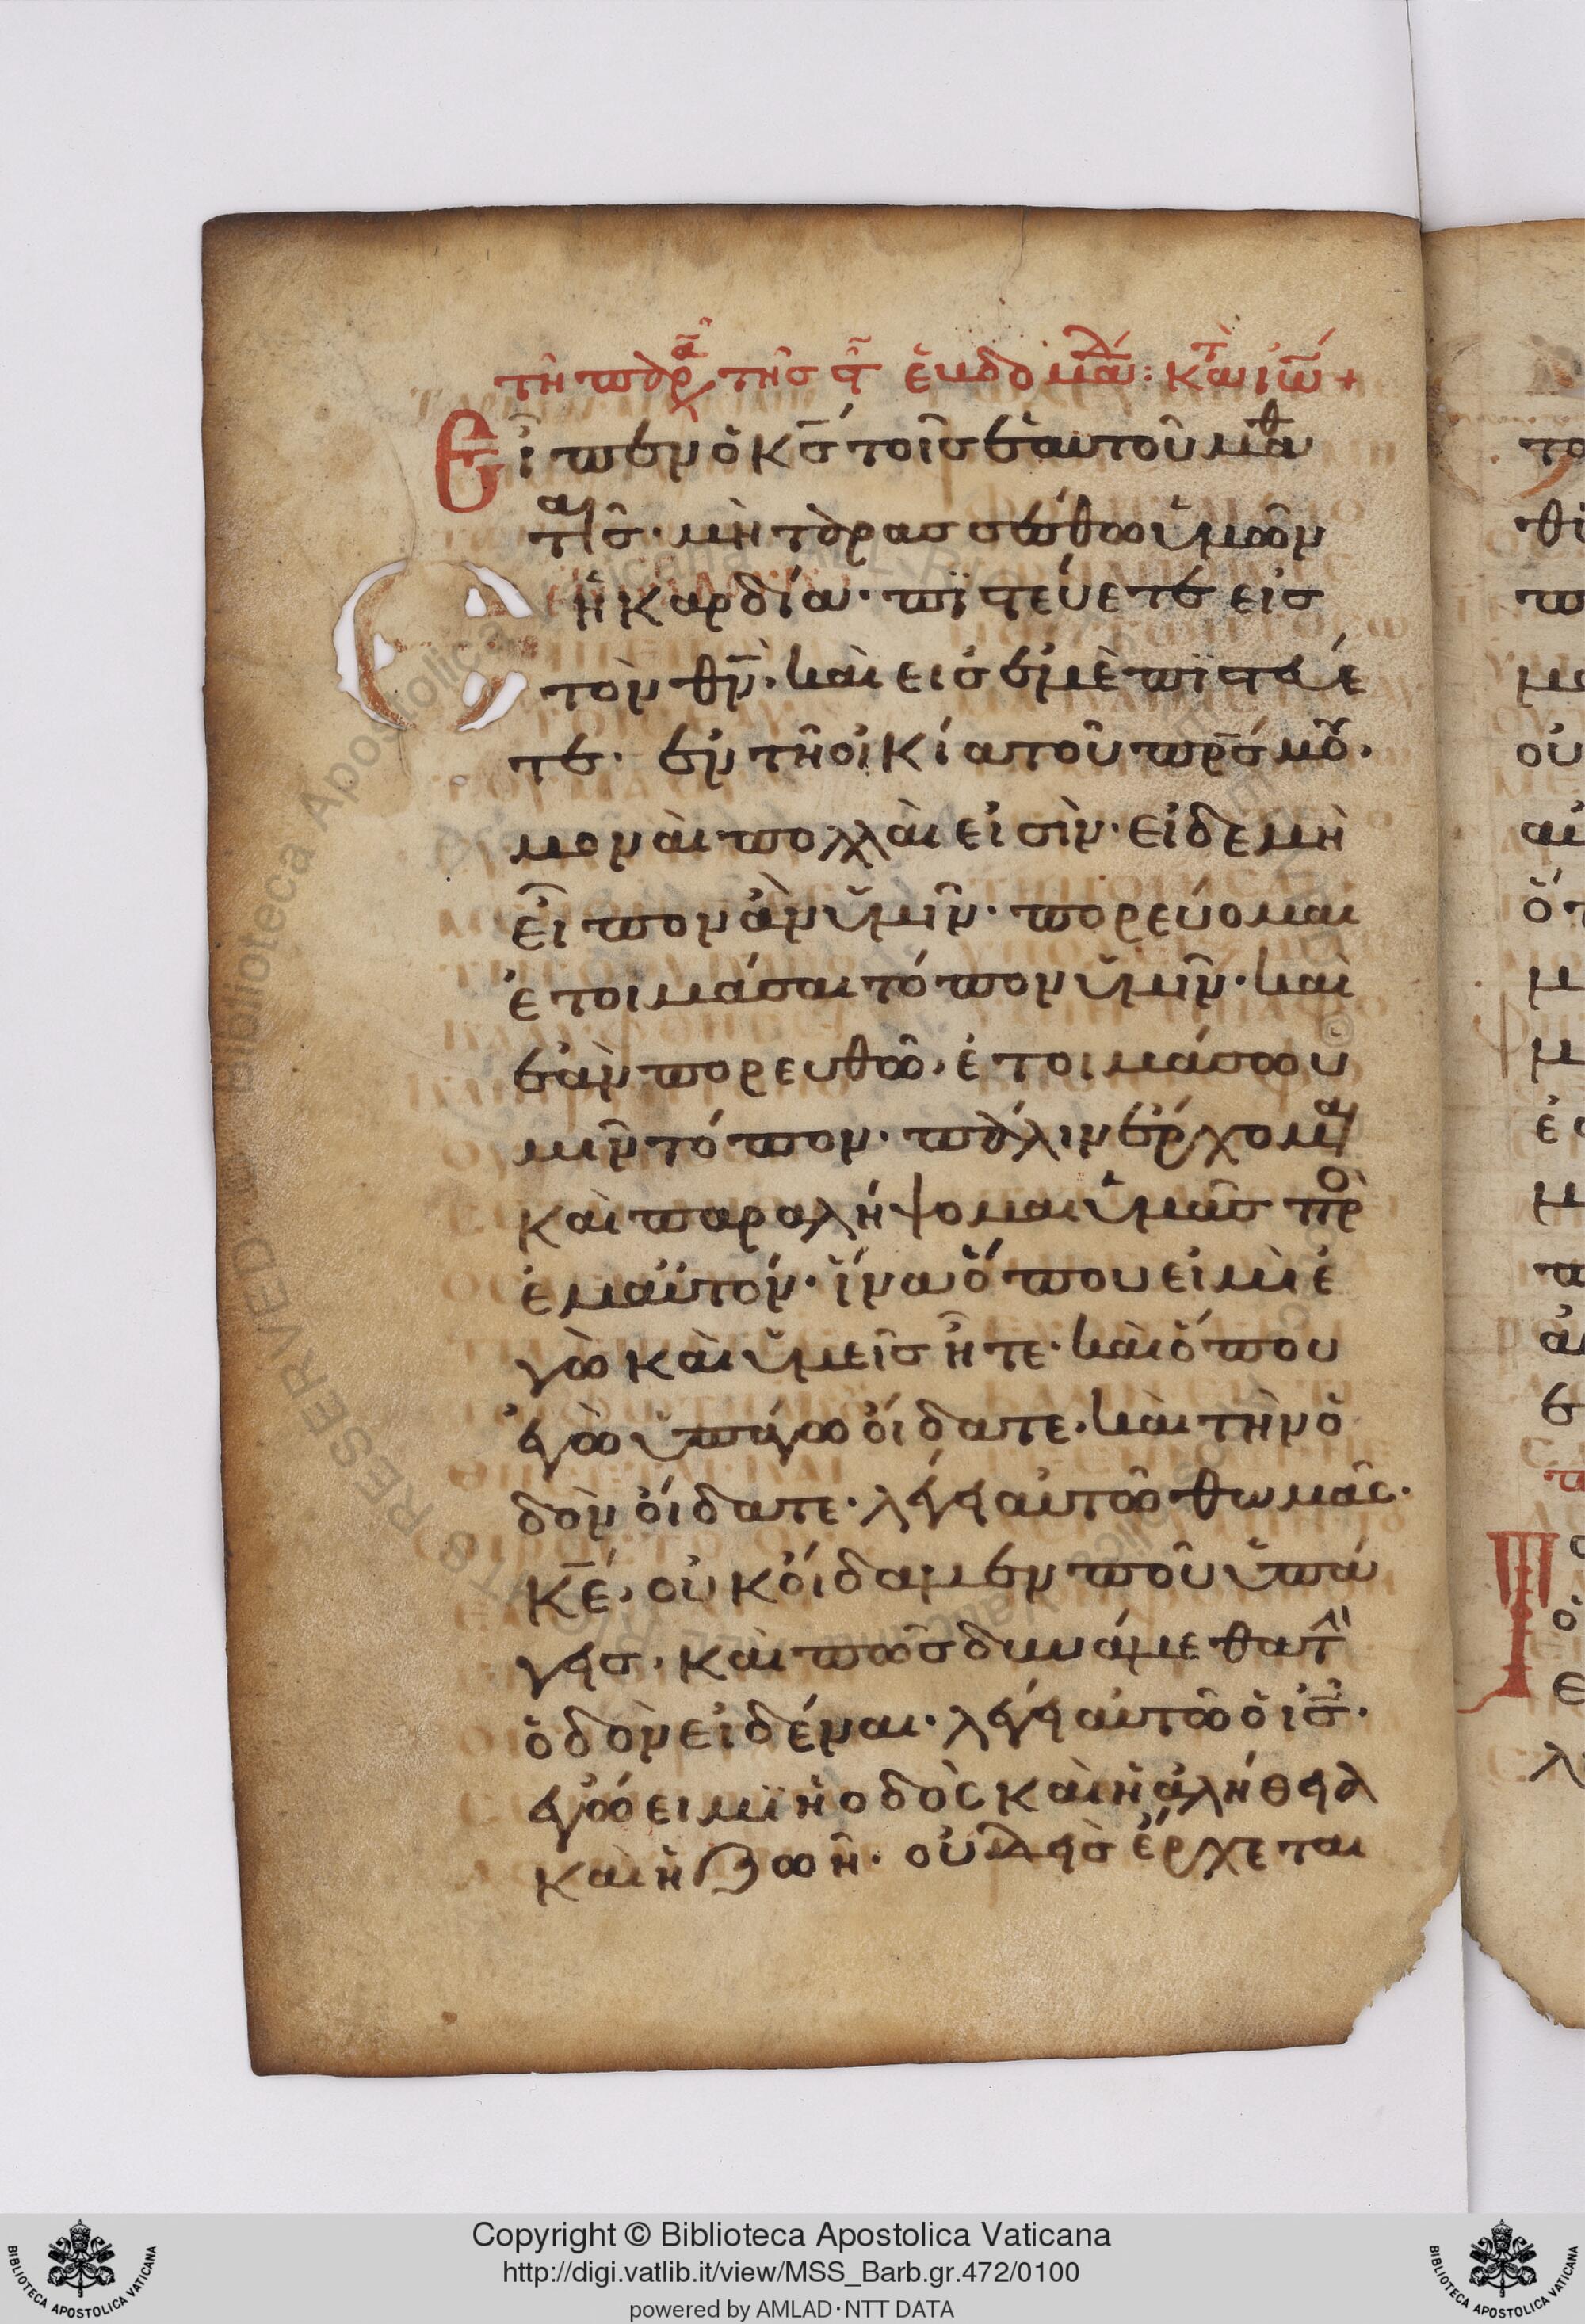 τῆ παρα τῆς ϛ ἐβδομαδ: κατὰ ιω +
Εἶπεν ὁ κς τοῖς ἑαυτοῦ μαθ
ταῖς· μὴ ταρασσέσθω ὑμῶν
ἡ καρδία· πιστεύετε εἰς
τὸν θν· καὶ εἰς ἐμὲ πιστεύε
τε· ἐν τῆ οἰκία τοῦ πρς μου·
μοναὶ πολλαὶ εἰσὶν· εἰ δε μὴ
εἶπον ἂν ὑμῖν· πορεύομαι
ἑτοιμάσαι τόπον ὑμῖν· καὶ
ἐὰν πορευθῶ, ἑτοιμάσω υ
μῖν τόπον· πάλιν ἔρχομαι
καὶ παραλήψομαι ὑμᾶς πρὸ
ἐμαυτόν· ἵνα ὅπου εἰμὶ ἐ
γὼ καὶ ὑμεῖς ἦτε· καὶ ὅπου
ἐγὼ ὑπάγω οἴδατε· καὶ τὴν ὁ
δὸν οἴδατε· λέγει αὐτῶ θωμᾶς·
κε, οὐκ οἴδαμεν ποῦ ὑπά
γεις· καὶ πῶς δυνάμεθα τὴ
ὁδὸν εἰδέναι· λέγει αὐτῶ ὁ ις·
ἐγώ ειμϊ ἡ οδὸς καὶ ἡ ἀλήθεια
καὶ ἡ ζωῆ· οὐδεὶς ἔρχεται
Copyright © Biblioteca Apostolica Vaticana
http://digi.vatlib.it/view/MSS_Barb.gr.472/0100
powered by AMLAD·NTT DATA
BIBLIOTECA APOSTOLICA VATICANA
BIBLIOTECA APOSTOLICA VATICANA